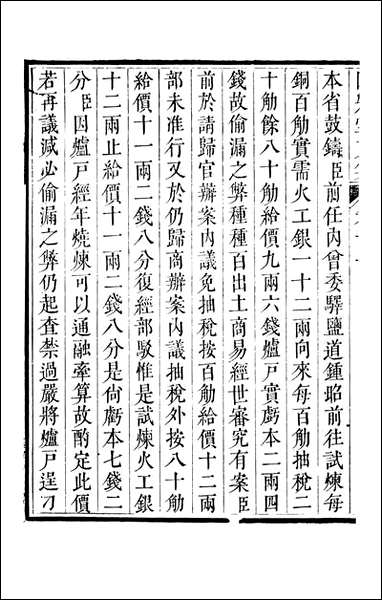 本省鼓鑄臣前任內曾委驛鹽道鍾昭前往試煉每
銅百觔實需火工銀一十二兩向來每百觔抽稅二
十觔餘八十觔給價九兩六錢爐戶實虧本二兩四
錢故偷漏之弊種種百出土商易經世審究有案臣
前於請歸官辦案內議免抽稅按百觔給價十二兩
部未准行又於仍歸商辦案內議抽稅外按八十觔
給價十一兩二錢八分復經部駁惟是試煉火工銀
十二兩止給價十一兩二錢八分是尚虧本七錢二
分臣因爐戶經年燒煉可以通融牽算故酌定此價
若再議減必偷漏之弊仍起查禁過嚴將爐戶逞刁